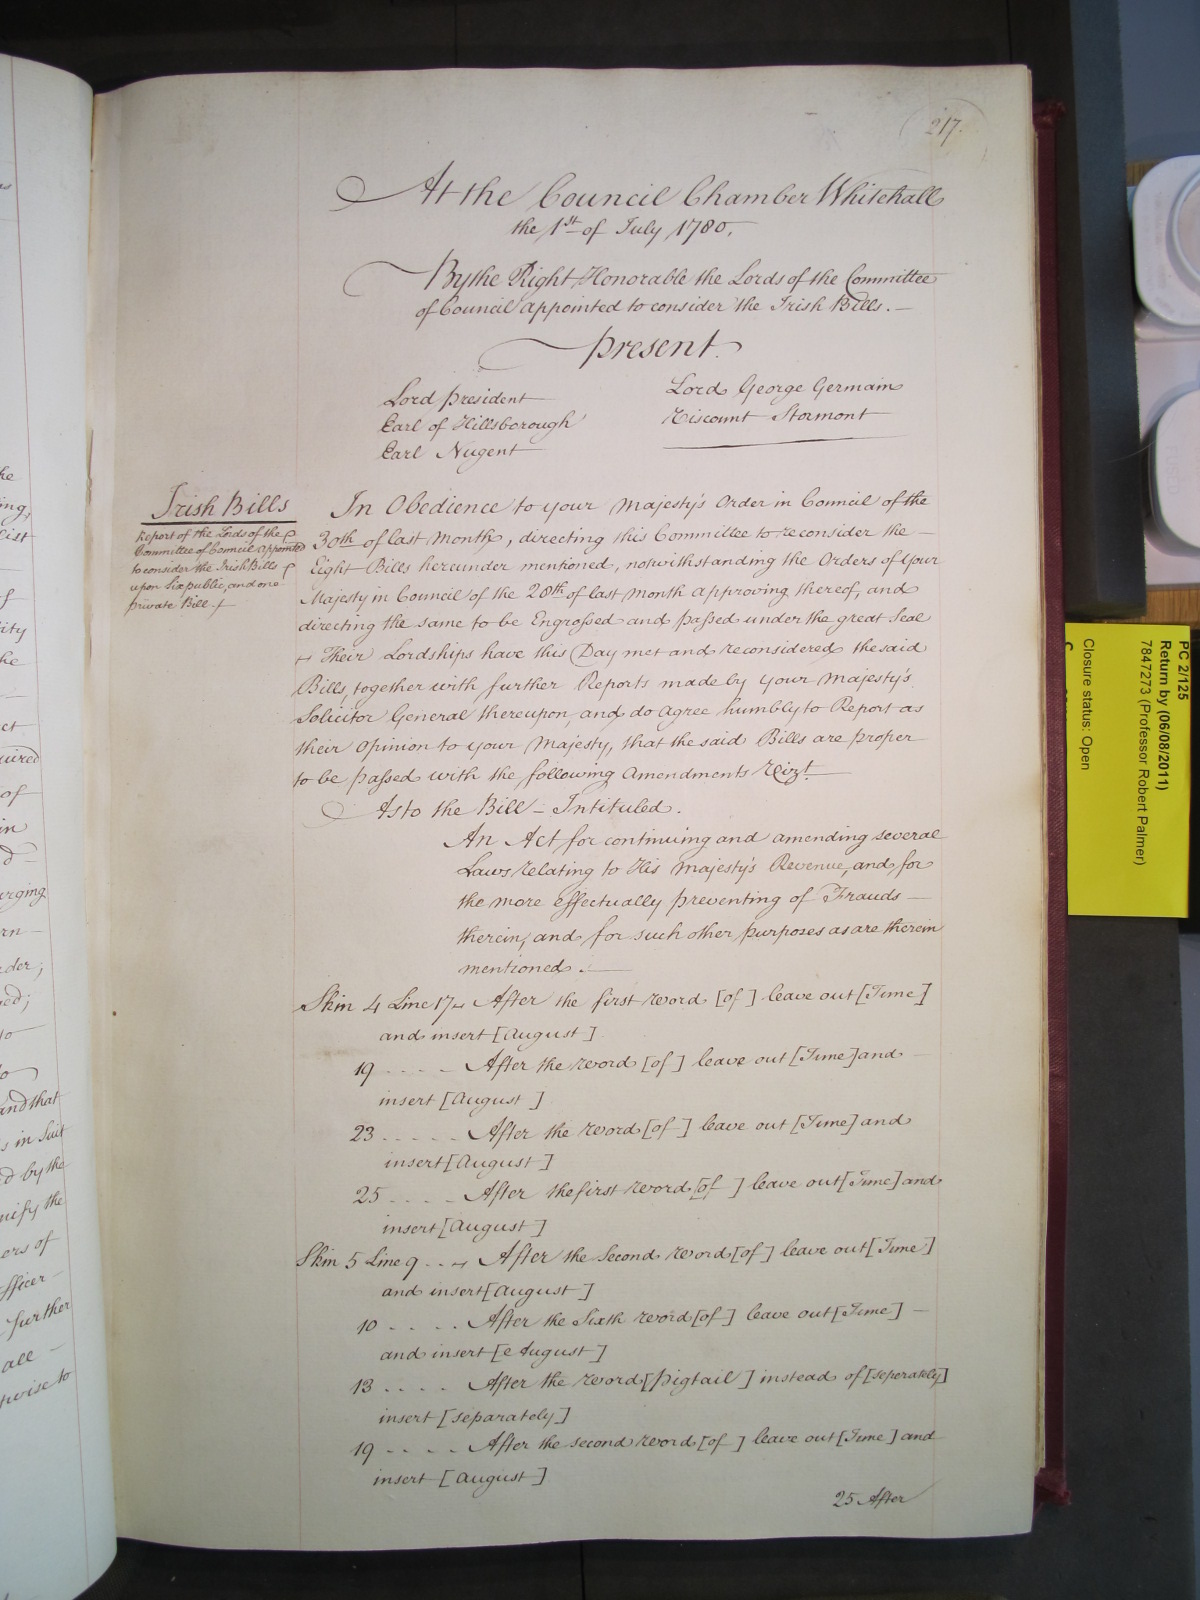 217.
At the Council Chamber Whitehall
the 1st of July 1780.
By the Right Honorable the Lords of the Committee
of Council appointed to consider the Irish Bills.
Present.
Lord President
Earl of Hillsborough
Earl Nugent
Lord George Germain
Viscount Stormont
Irish Bills
Report of the Lords of the
Committee of Council appointed
to consider the Irish Bills
upon Six public, and one
private Bill.
In Obedience to your Majesty's Order in Council of the
30th of last Month, directing this Committee to reconsider the
Eight Bills hereunder mentioned, notwithstanding the Orders of Your
Majesty in Council of the 28th of last Month approving thereof, and
directing the same to be Engrossed and passed under the great Seal
Their Lordships have this Day met and reconsidered the said
Bills, together with further Reports made by your Majesty's
Solicitor General thereupon, and do agree humbly to Report as
their Opinion to your Majesty, that the said Bills are proper
to be passed with the following Amendments Vizt.
As to the Bill - Intituled.
An Act for continuing and amending several
Laws relating to His Majesty's Revenue, and for
the more effectually preventing of Frauds
therein, and for such other purposes as are therein
mentioned.
Skin 4 Line 17 After the first word [of] leave out [June]
and insert [August]
19 .... After the word [of] leave out [June] and
insert [August]
23 ..... After the word [of] leave out [June] and
insert [August]
25 .... After the first word [of] leave out [June] and
insert [August]
Skin 5 Line 9 ... After the Second word [of] leave out [June]
and insert [August]
10 .... After the Sixth word [of] leave out [June]
and insert [August]
13 .... After the word [Pigtail] instead of [seperately]
insert [separately]
19 .... After the second word [of] leave out [June] and
insert [August]
25 After
PC 2/125
Return by (06/08/2011)
7847273 (Professor Robert Palmer)
Closure status: Open